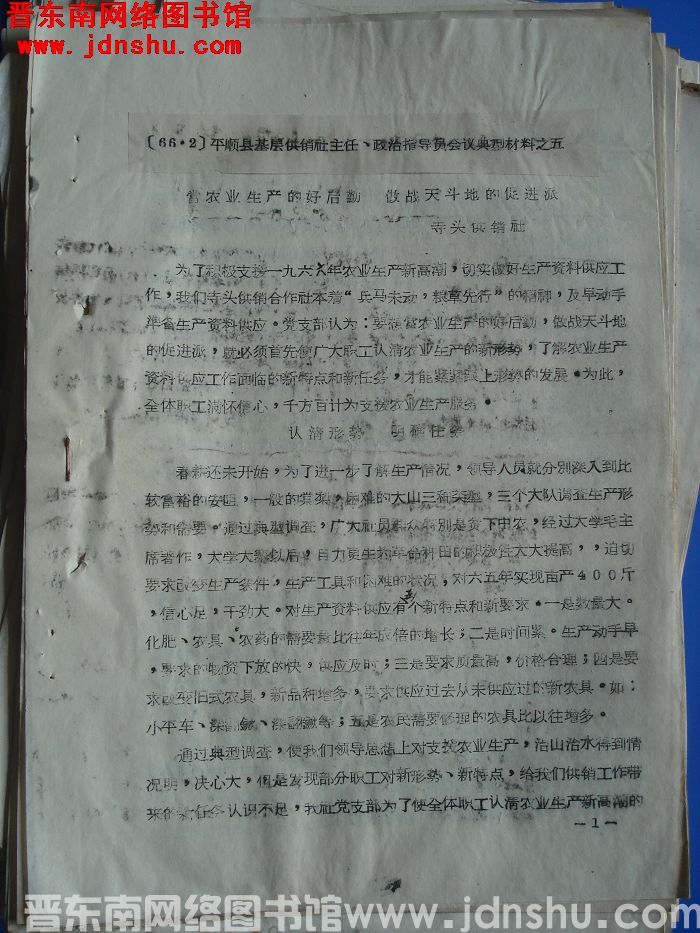 晋东南网络图书馆
www.jdnshu.com
〔66·2〕平顺县基层供销社主任、政治指导员会议典型材料之五
当农业生产的好后勤 做战天斗地的促进派
寺头供销社
为了积极支援一九六六年农业生产新高潮，切实做好生产资料供应工
作，我们寺头供销合作社本着“兵马未动，粮草先行”的精神，及早动手
准备生产资料供应。党支部认为：要想当农业生产的好后勤，做战天斗地
的促进派，就必须首先使广大职工认清农业生产的新形势，了解农业生产
资料供应工作面临的新特点和新任务，才能紧紧跟上形势的发展。为此，
全体职工满怀信心，千方百计为支援农业生产服务。
认清形势 明确任务
春耕还未开始，为了进一步了解生产情况，领导人员就分别深入到比
较富裕的安咀，一般的棠梨，困难的大山三种类型，三个大队调查生产形
势和需要。通过典型调查，广大社员群众特别是贫下中农，经过大学毛主
席著作，大学大寨以后，自力更生的革命种田的积极性大大提高，，迫切
要求改变生产条件，生产工具和困难的状况，对六五年实现亩产400斤
，信心足，干劲大。对生产资料供应有五个新特点和新要求。一是数量大。
化肥、农具、农药的需要量比往年成倍的增长；二是时间紧。生产动手早
，要求的物资下放的快，供应及时；三是要求质量高，价格合理；四是要
求改变旧式农具，新品种增多，要求供应过去从未供应过的新农具。如：
小平车、深翻锨、深翻镢等；五是农民需要修理的农具比以往增多。
通过典型调查，使我们领导思想上对支援农业生产，治山治水得到情
况明，决心大，但是发现部分职工对新形势、新特点，给我们供销工作带
来的新任务认识不足，我社党支部为了使全体职工认清农业生产新高潮的
—1—
晋东南网络图书馆 www.jdnshu.com